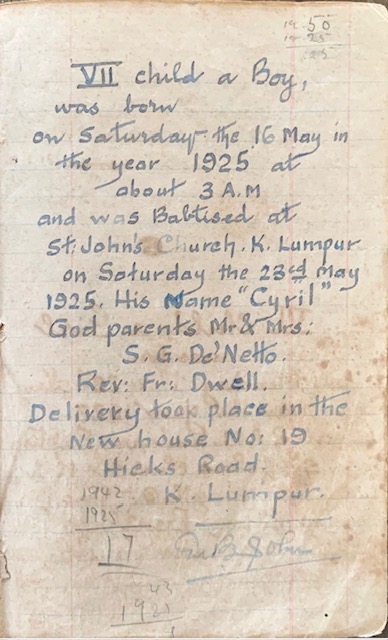 19 50
19 25
25
VII child a Boy,
was born
on Saturday the 16 May in
the year 1925 at
about 3 A.M
and was Babtised at
St. John's Church. K. Lumpur
on Saturday the 23rd May
1925. His Name "Cyril"
God parents Mr & Mrs:
S. G. De'Netto.
Rev: Fr: Dwell.
Delivery took place in the
New house No: 19
Hicks Road.
K. Lumpur.
1942
1925
17
43
1921